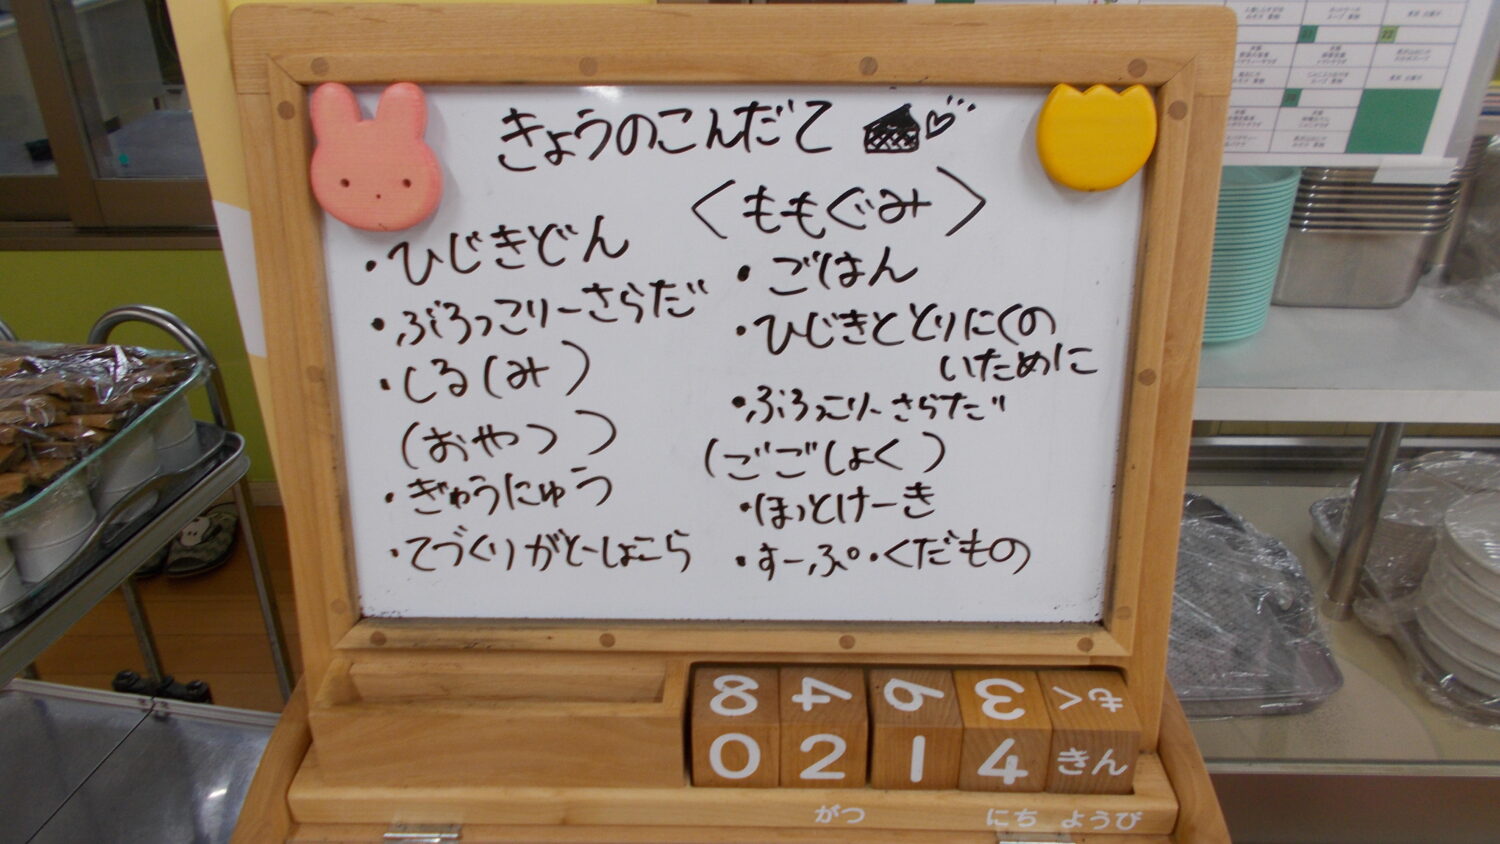 きょうのこんだて
・ひじきどん
・ぶろっこりーさらだ
・しる(みそ)
(おやつ)
・ぎゅうにゅう
・てづくりがとーしょこら
〈ももぐみ〉
・ごはん
・ひじきととりにくの
いために
・ぶろっこりーさらだ
(ごごしょく)
・ほっとけーき
・すーぷ・くだもの
8 4 6 3 もく
0 2 1 4 きん
がつ にち ようび